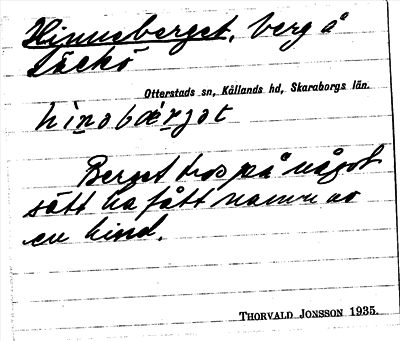 Hinneberget, berg å
Otterstads sn, Kållands hd, Skaraborgs län.
Berget tros på något
sätt ha fått namn av
en hind.
THORVALD JONSSON 1935.